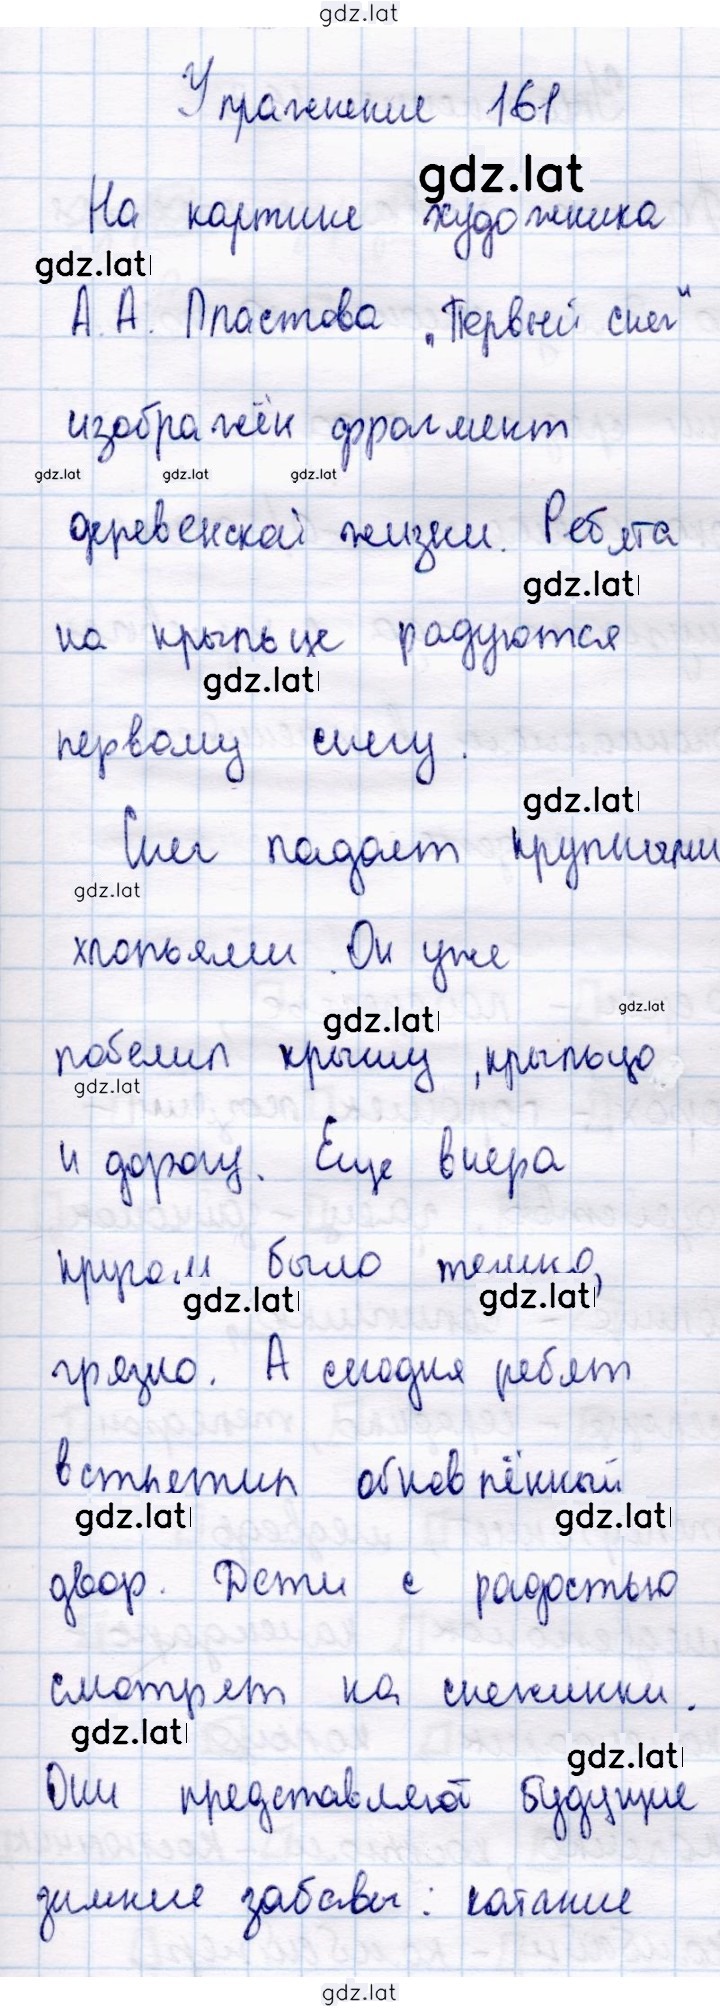 gdz.lat
Упражнение 161
gdz.lat
На картине художника
gdz.lat
А. А. Пластова „Первый снег"
изображён фрагмент
gdz.lat gdz.lat gdz.lat
деревенской жизни. Ребята
gdz.lat
на крыльце радуются
gdz.lat
первому снегу.
gdz.lat
Снег падает крупными
gdz.lat
хлопьями. Он уже
gdz.lat
gdz.lat
побелил крышу, крыльцо
gdz.lat
и дорогу. Еще вчера
кругом было темно,
gdz.lat gdz.lat
грязно. А сегодня ребят
встретил обновлённый
gdz.lat gdz.lat
двор. Дети с радостью
смотрят на снежинки.
gdz.lat
gdz.lat
Они представляют будущие
зимние забавы: катание
gdz.lat